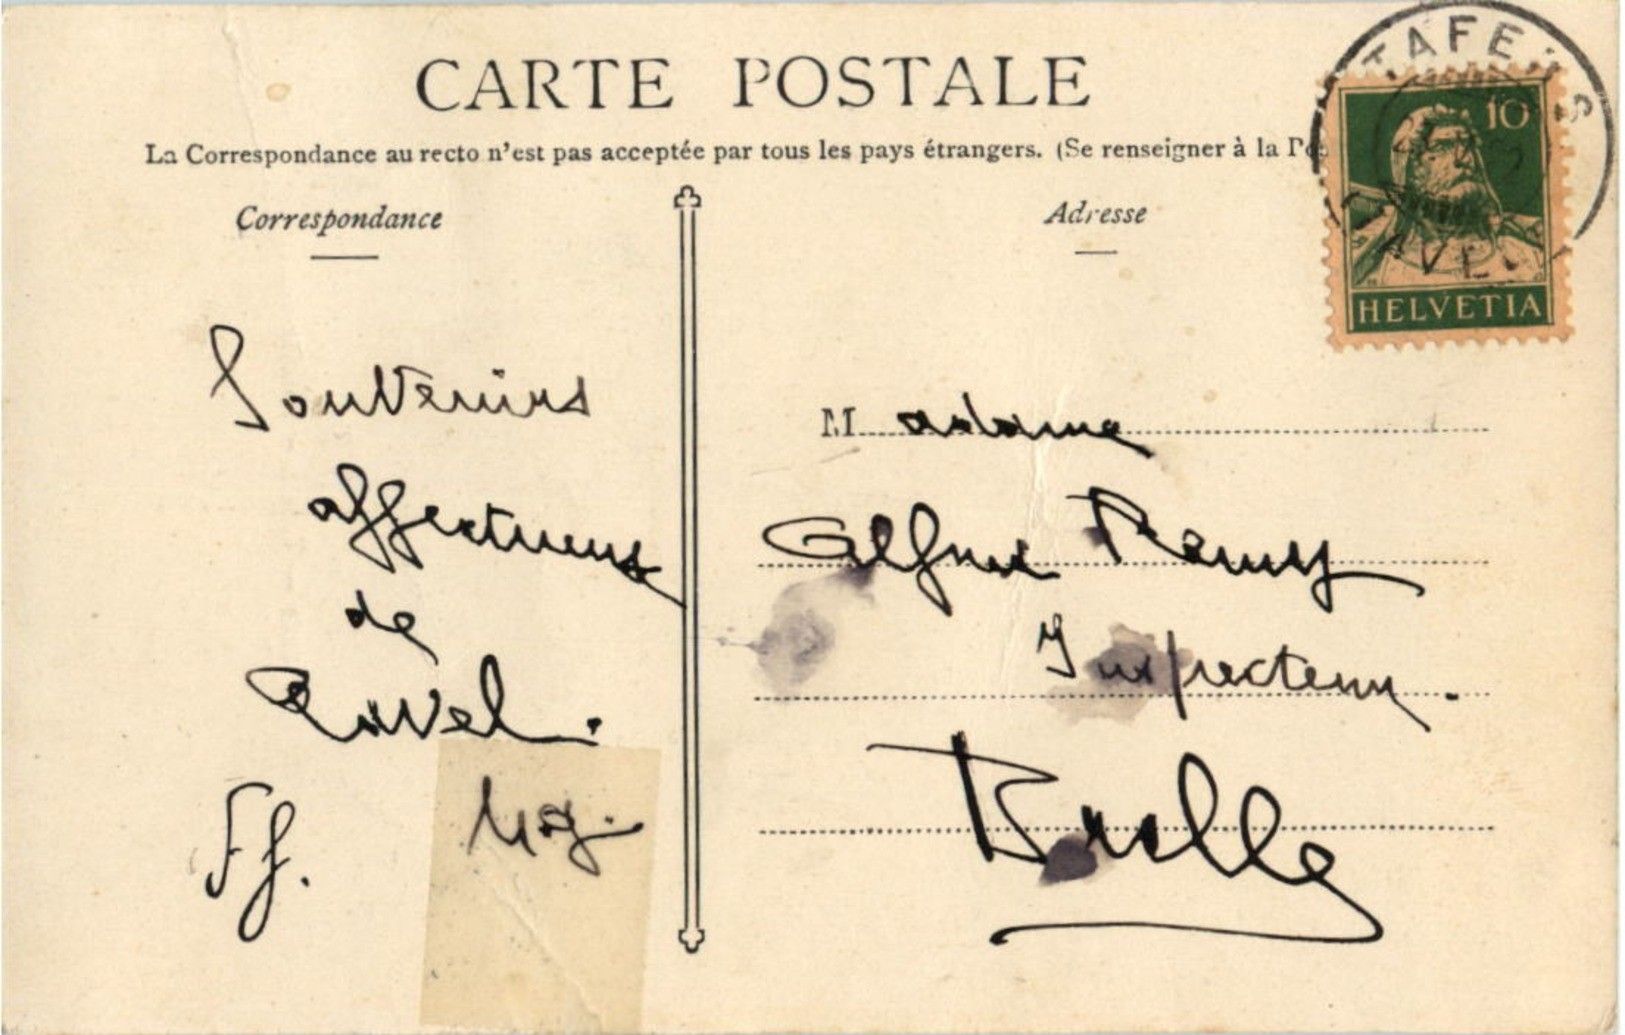 CARTE POSTALE
La Correspondance au recto n'est pas acceptée par tous les pays étrangers. (Se renseigner à la
Correspondance
Adresse
10
HELVETIA
Souvenirs
affectueux
de
Ravel.
Madame
Alfred Remy
Inspecteur.
Bulle